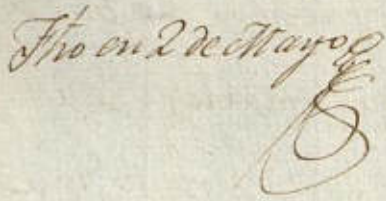 Fho en 2 de Mayo